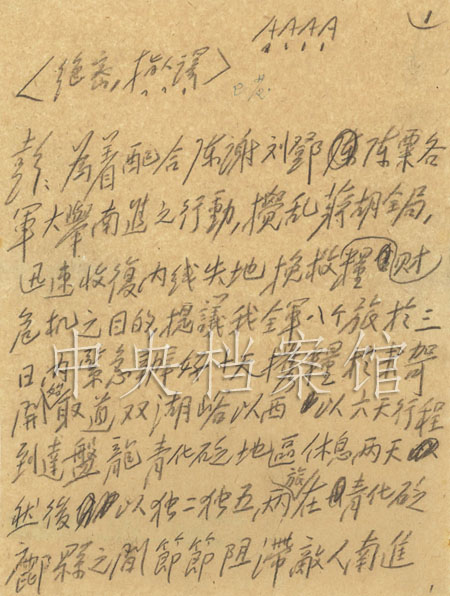 1
AAAA
〈绝密,指人译〉
彭:為着配合陈谢刘鄧陈粟各
軍大舉南進之行動,攪乱蒋胡全局,
迅速收復内线失地挽救糧财
危机之目的,提議我全軍八个旅於三
日内緊急 糧
中央档案馆
開始取道双湖峪以西以六天行程
到達盤龍青化砭地區休息两天
然後以独二独五两旅在青化砭
鄜縣之间節節阻滞敵人南進